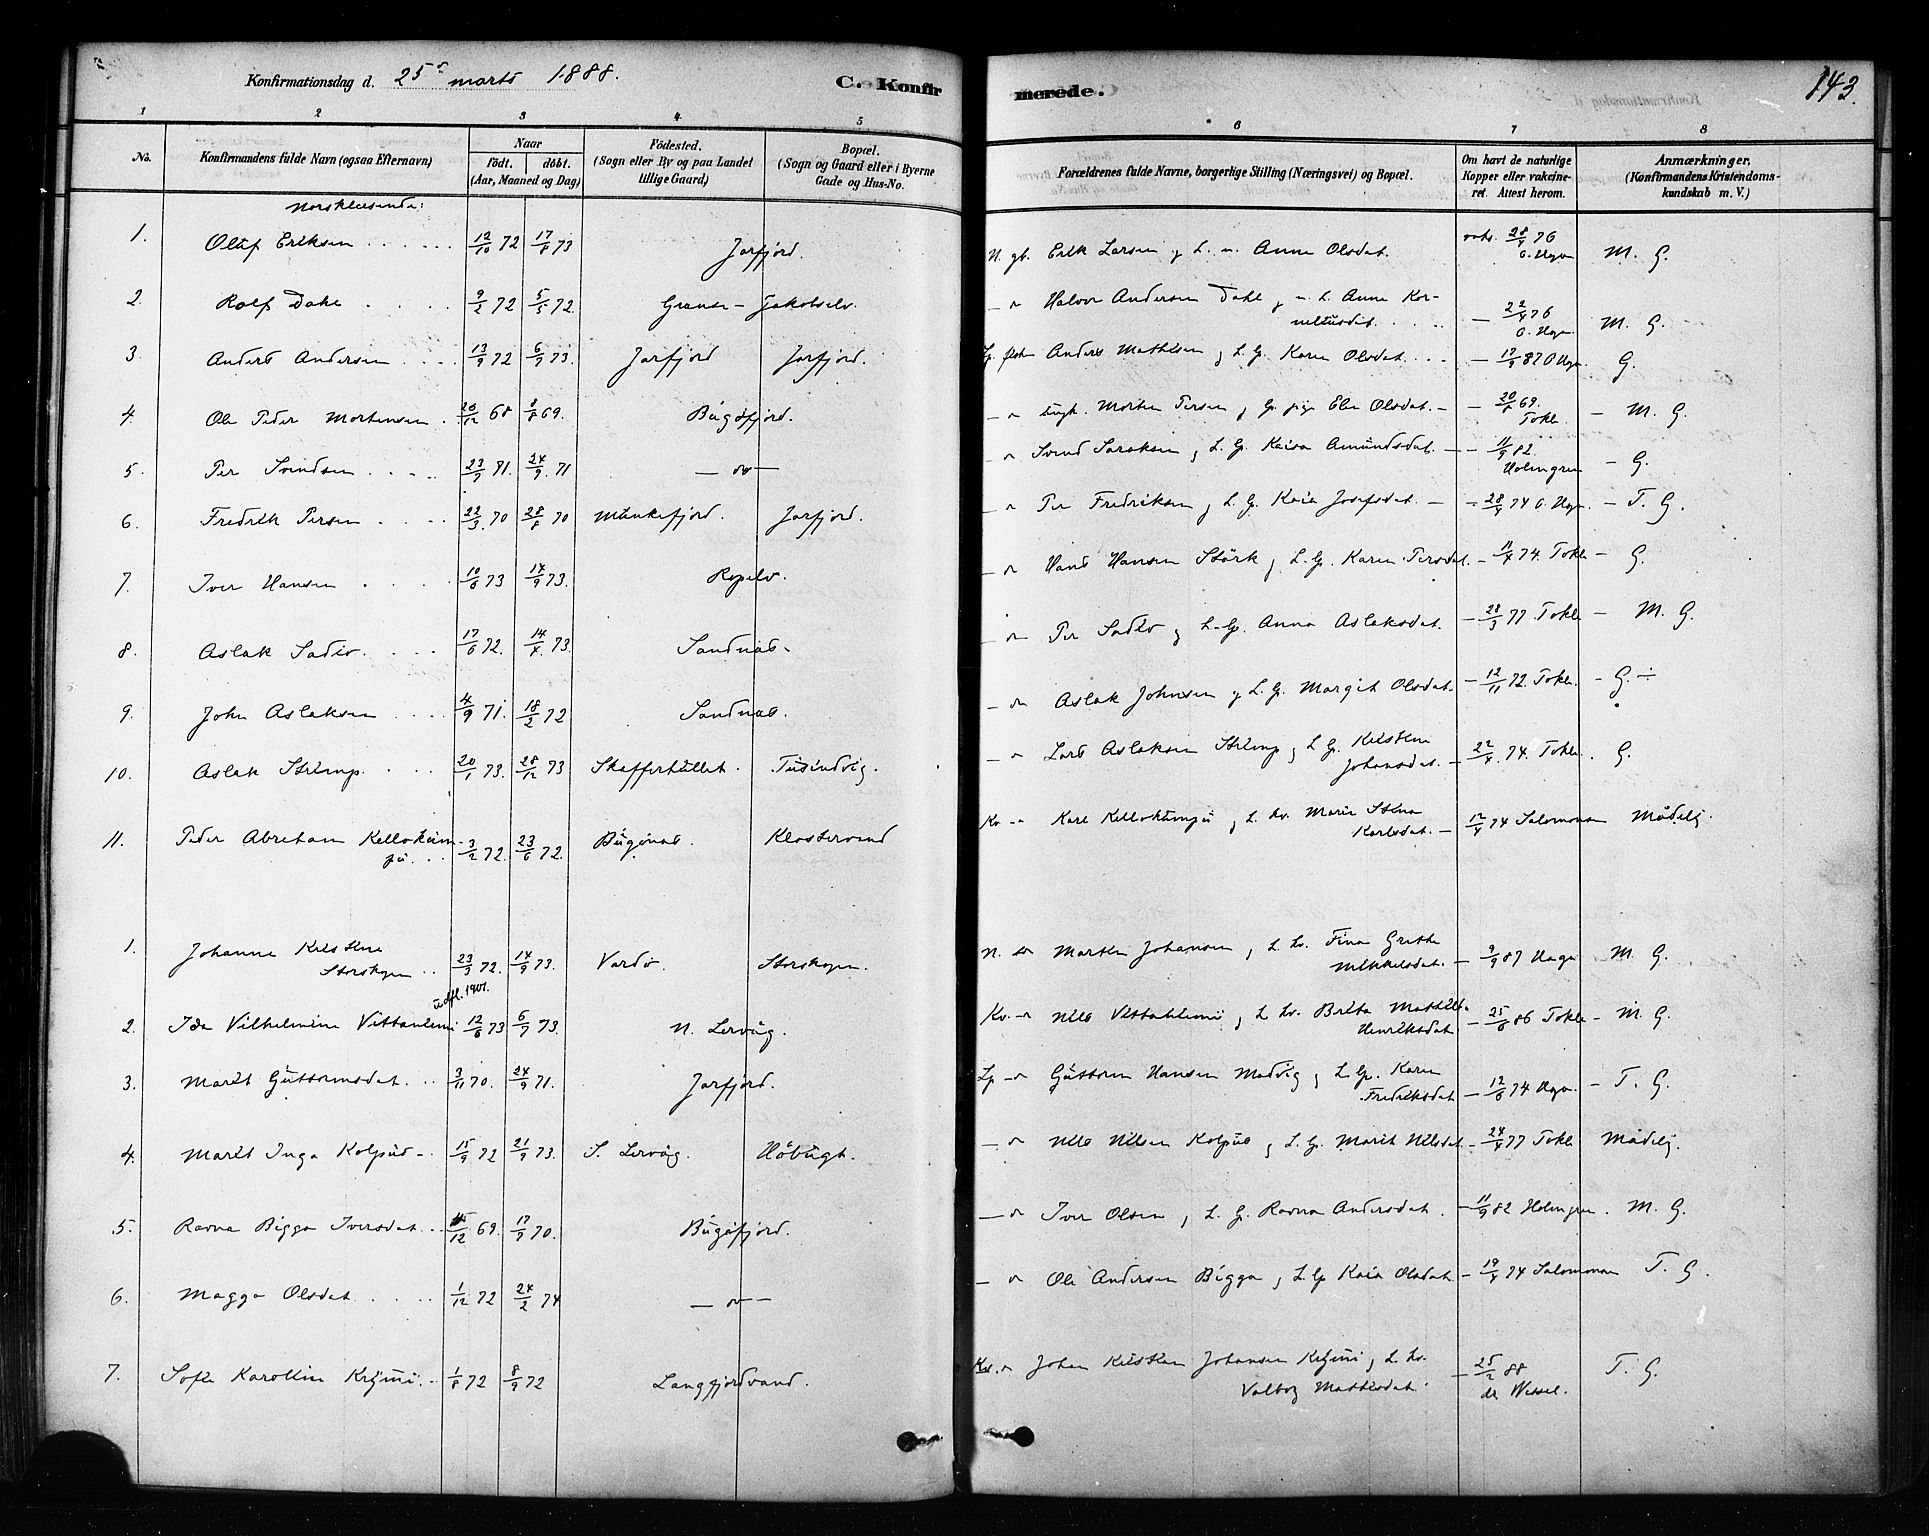 Konfirmationsdag d. 25de marts 1888.
C. Konfirmerede.
143.
1 2 3 4 5 6 7 8
No.
Konfirmandens fulde Navn (ogsaa Efternavn)
Naar
födt. döbt.
(Aar, Maaned og Dag)
Födested.
(Sogn eller By og paa Landet
tillige Gaard)
Bopæl.
(Sogn og Gaard eller i Byerne
Gade og Hus-No.
Forældrenes fulde Navne, borgerlige Stilling (Næringsvei) og Bopæl.
Om havt de naturlige
Kopper eller vakcine-
ret. Attest herom.
Anmærkninger.
(Konfirmandens Kristendoms-
kundskab m. V.)
Norsklæsende:
1. Oluf Eriksen 12/10 72 17/8 73 Jarfjord. N. gb. Erik Larsen g L. n. Anne Olsdat. vaks. 28/4 76 M. G.
2. Rolf Dahl 9/2 72 5/5 72. Grænse-Jakobselv. Halvor Andersen Dahl g n. L. Anne Kor-
neliusdat. 22/4 76 M. G.
3. Anders Andersen 13/9 72 6/9 73. Jarfjord Jarfjord. Anders Mathisen g L. G. Karen Olsdat. 17/9 87 G.
4. Ole Peder Mortensen 26/12 68 8/8 69. Bugöfjord. ungk. Morten Persen g Lp. pige Elen Olsdat. 20/8 69. Tokle M. G.
5. Per Svendsen 23/9 71. 24/9 71 - do - Svend Saraksen g L. G. Kaisa Amundsdat. 11/9 82. Holmgren G.
6. Fredrik Persen 22/3 70 28/8 70 Munkefjord. Jarfjord. Per Fredriksen g L. G. Kaia Josefsdat. 28/4 74 T. G.
7. Iver Hansen 10/6 73 14/9 73. Ropelv. Hans Hansen Störk g L. G. Karen Persdat. 11/4 74. Tokle G.
8. Aslak Sadiv. 17/6 72. 14/4 73. Sandnæs. Per Sadiv g L. G. Anna Aslaksdat. 28/3 77 Tokle M. G.
9. John Aslaksen 4/9 71. 18/2 72 Sandnæs. Aslak Johnsen g L. G. Margit Olsdat. 12/11 72. Tokle. G. ÷
10. Aslak Strimp. 20/1 73. 28/12 73 Skafferhullet. Tusindvig. Lars Aslaksen Strimp g L. G. Kristine
Johansdat. 22/4 74. Tokle. G.
11. Peder Abraham Kellokum-
pu 3/2 72. 23/6 72. Bugönæs. Klostervand Kv. Karl Kellokumpu g L. kv. Marie Stina
Karlsdat. 12/4 74 Salomonsen Mådelig.
1. Johanne Kristine
Storskogen 23/3 72. 14/9 73. Vardö. Storskogen. N. Morten Johansen g L. kv. Fina Grethe
Mikkelsdat. 9/9 87 M. G.
udfl. 1901.
2. Ida Vilhelmine Vittaniemi 12/6 73 6/7 73. N. Lervåg. Kv. Nils Vittaniemi g L. kv. Brita Mathild.
Henriksdat 25/6 86 Tokle M. G.
3. Marit Guttormsdat. 3/11 70. 24/9 71. Jarfjord. Lp. Guttorm Hansen Madvig g L. G. Karen
Fredriksdat 12/6 74 T. G.
4. Marit Inga Kolpus 15/9 72 21/9 73. S. Lervåg. Höbugt. Nils Nilsen Kolpus g L. G. Marit Nilsdat 24/4 77 Tokle Mådelig.
5. Ravna Bigga Iversdat. /12 69. 17/9 70. Bugöfjord. Iver Olsen g L. G. Ravna Andersdat. 11/9 82 Holmgren. M. G.
6. Magga Olsdat. 1/12 72 24/2 74 - do - Ole Andersen Bigga g L. G. Kaia Olsdat 19/4 74 Salomonsen T. G.
7. Sofie Karoline 1/8 72 8/9 72 Langfjordvand. Kv. Johan Kristian Johansen g L. kv.
Valborg Mathisdat. 25/2 88 dr Wessel. T. G.